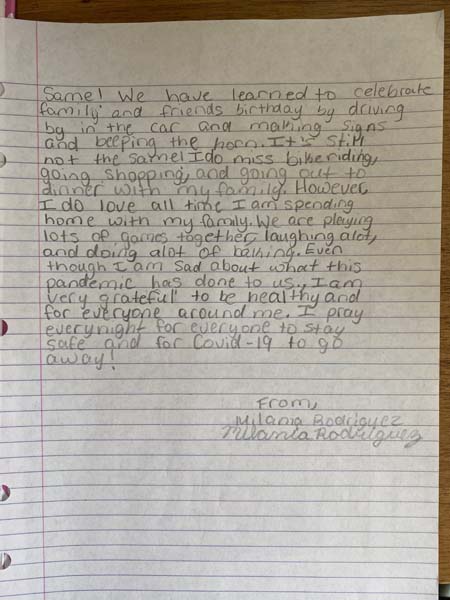 Same! We have learned to celebrate
family and friends birthday by driving
by in the car and making signs
and beeping the horn. It's still
not the same! I do miss bikeriding,
going shopping, and going out to
dinner with my family. However,
I do love all time I am spending
home with my family. We are playing
lots of games together, laughing alot,
and doing alot of baking. Even
though I am sad about what this
pandemic has done to us, I am
very grateful to be healthy and
for everyone around me. I pray
everynight for everyone to stay
safe and for Covid-19 to go
away!
From,
Milania Rodriguez
Milania Rodriguez